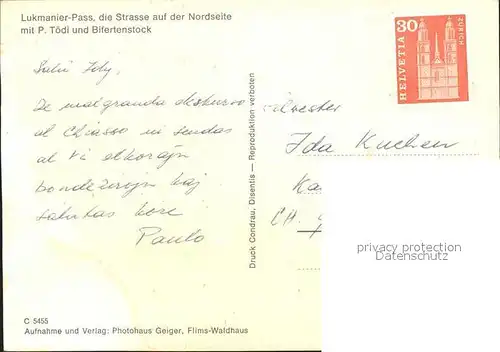 Lukmanier-Pass, die Strasse auf der Nordseite
mit P. Tödi und Bifertenstock
HELVETIA
30
ZÜRICH
Salu
De malgranda
al Chiasso mi sendas
al vi elkorajn
bondezirojn kaj
salutas kore
Paulo
Ida
CH.
Druck Condrau, Disentis — Reproduktion verboten
privacy protection
Datenschutz
C 5455
Aufnahme und Verlag: Photohaus Geiger, Flims-Waldhaus